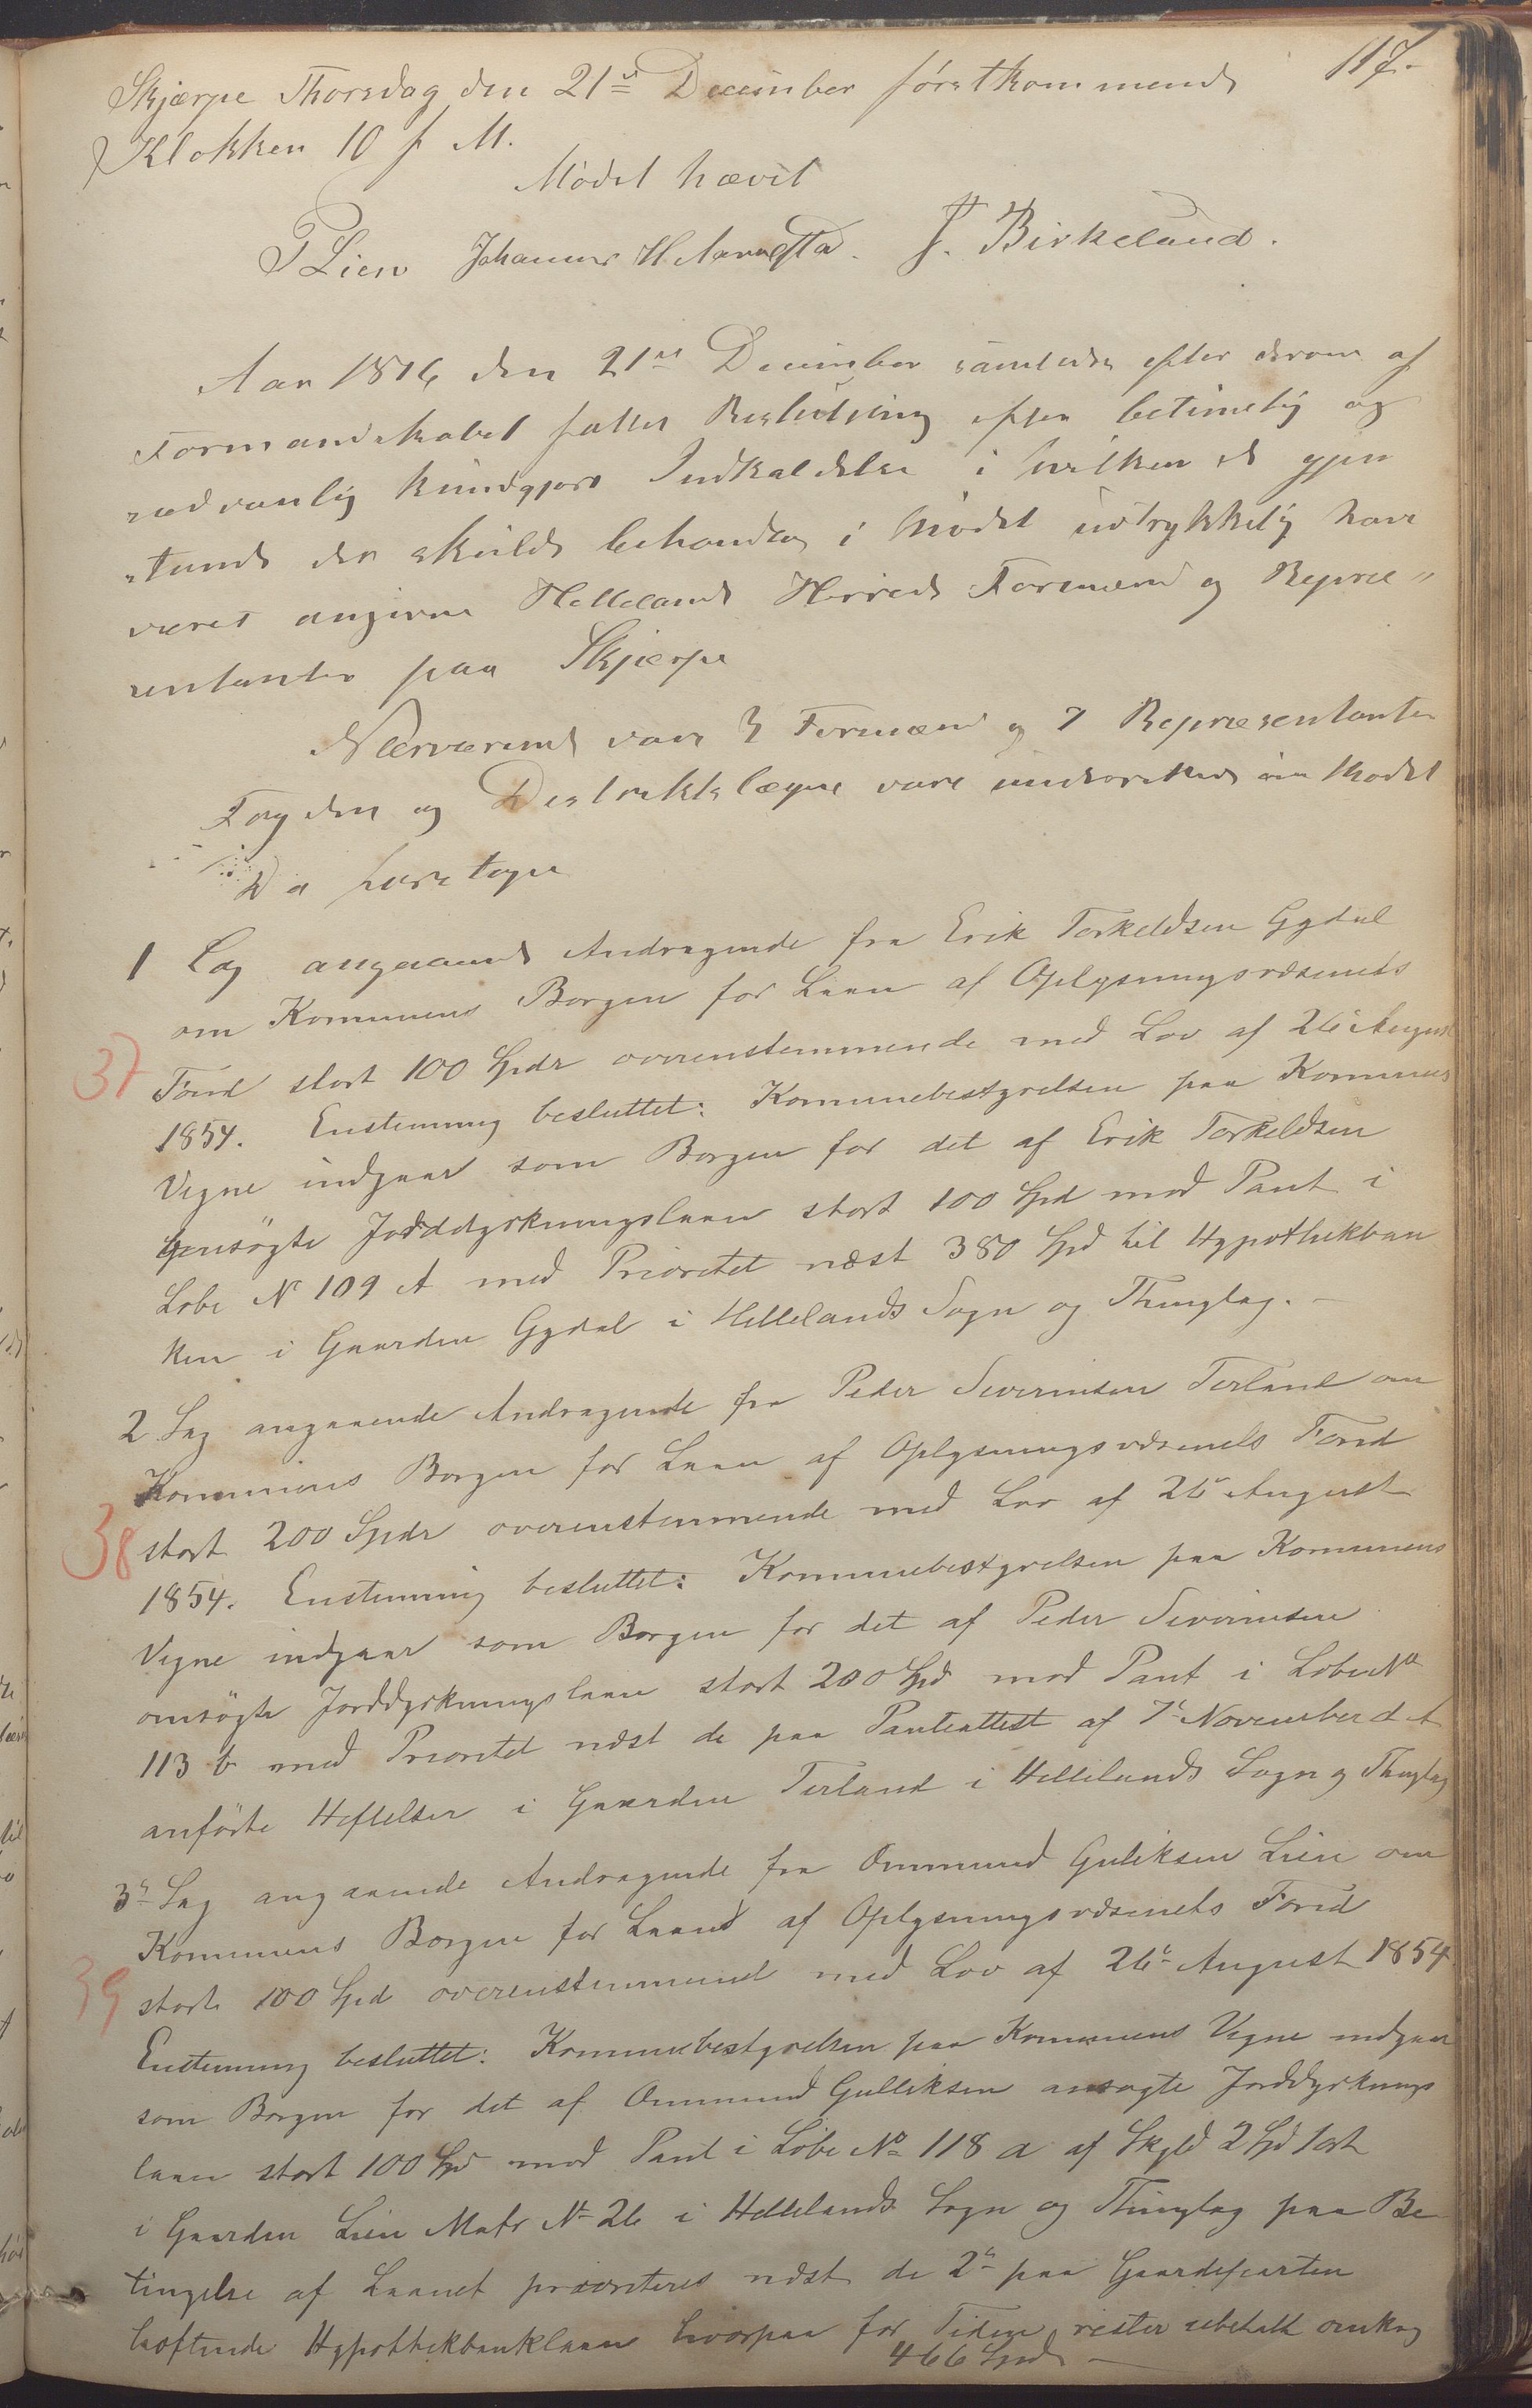 117.
Skjærpe Thorsdag den 21de December førstkommende
Klokken 10 f M.
Mødet hævet
P Lien Johannes H. J. Birkeland.
Aar 1876 den 21de December samledes efter derom af
Formandskabet fattet Beslutning efter betimelig og
sædvanlig kundgjort Indkaldelse i hvilken de gjen
stande der skulde behandles i Mødet udtrykkelig have
været angivne Hellelands Herreds Formænd og Repræ"
sentanter paa Skjærpe
Nærværende vare 3 Formænd og 7 Repræsentanter
Fogden og Destriktslægen vare underrettede om Mødet
Da foretoges
1 Sag angaaende Andragende fra Erik Torkeldsen Gydal
om Kommunens Borgen for Laan af Oplysningsvæsenets
37
Fond stort 100 Spdr overenstemmende med Lov af 26de August
1854. Enstemmig besluttet: Kommunebestyrelsen paa Kommunens
Vegne indgaar som Borgen for det af Erik Torkeldsen
ansøgte Jorddyrkningslaan stort 100 Spd mod Pant i
Løbe No 109 A med Prioritet næst 380 Spd til Hypothekban
ken i Gaarden Gydal i Hellelands Sogn og Thinglag. -
2 Sag angaaende Andragende fra Peder Severinsen Terland om
Kommunens Borgen for Laan af Oplysningsvæsenets Fond
38
stort 200 Spdr overenstemmende med Lov af 26de August
1854. Enstemmig besluttet: Kommunebestyrelsen paa Kommunens
Vegne indgaar som Borgen for det af Peder Severinsen
omsøgte Jorddyrkningslaan stort 200 Spd mod Pant i Løbe No
113 b med Prioritet næst de paa Panteattest af 7de November d A
anførte Heftelser i Gaarden Terland i Hellelands Sogn og Thinglag
3de Sag angaaende Andragende fra Ommund Guliksen Lien om
Kommunens Borgen for Laan af Oplysningsvæsenets Fond
39
stort 100 Spd overenstemmend med Lov af 26de August 1854
Enstemmig besluttet: Kommunebestyrelsen paa Kommunens Vegne indgaar
som Borgen for det af Ommund Gulliksen ansøgte Jorddyrknings
laan stort 100 Spd mod Pant i Løbe No 118 a af Skyld 2 Spd 1 ort
i Gaarden Lien Matr No 26 i Hellelands Sogn og Thinglag paa Be
tingelse af Laanet prioriteres næst de 2de paa Gaardeparten
heftende Hypothekbanklaan hvorpaa for Tiden rester ubetalt omkrg
466 Spd -